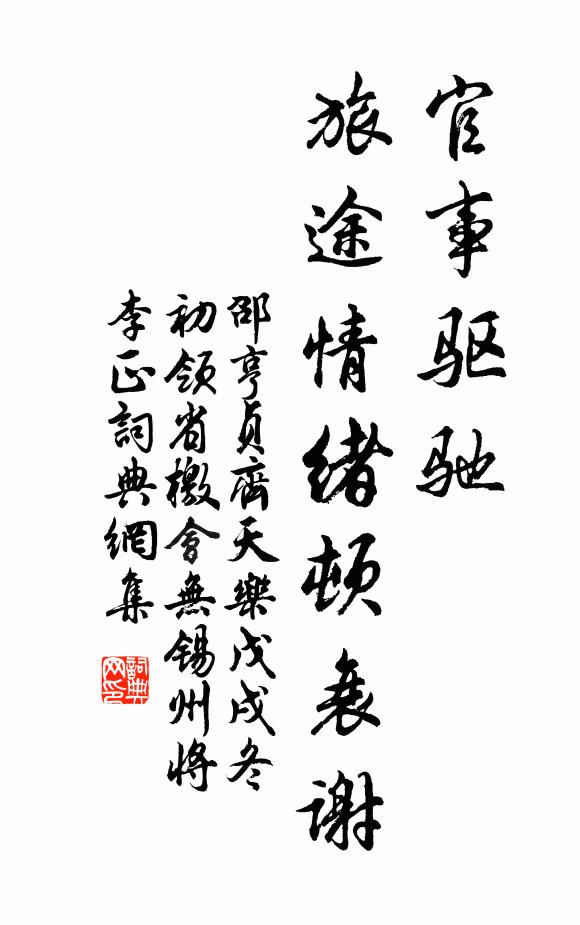 官事驱驰
旅途情绪顿衰谢
邵亨贞齊天樂戊戌冬
初领省檄會無锡州将
李正詞典網集
詞典
网印